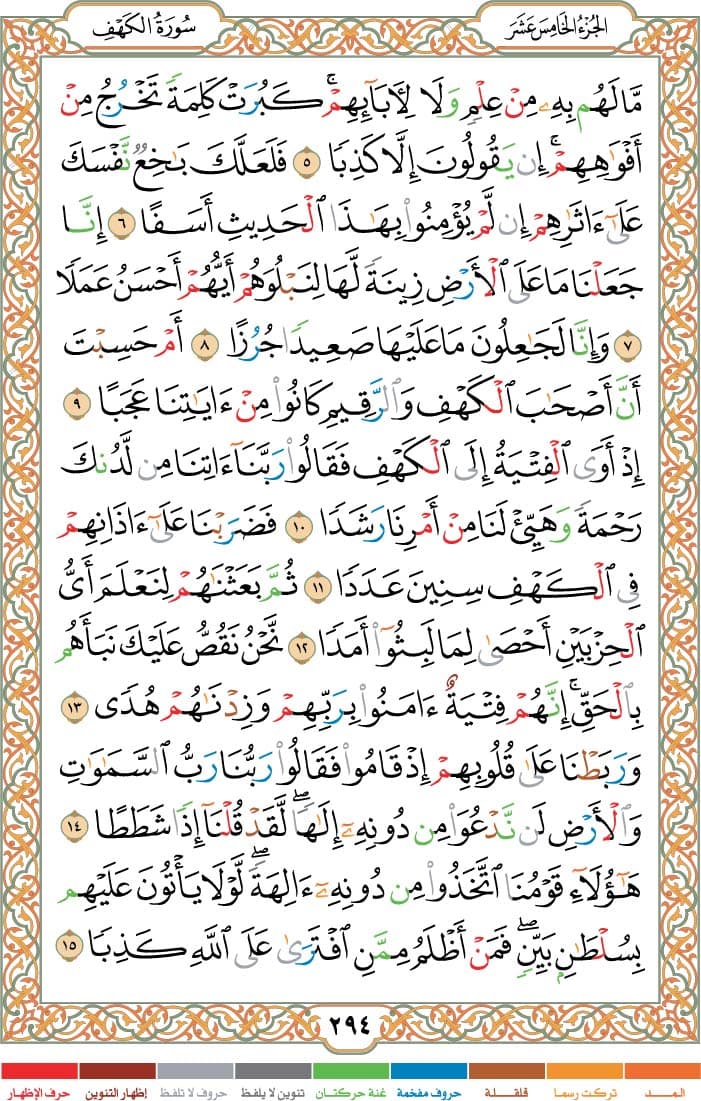 الجُزْءُ الخَامِسَ عَشَرَ
سُورَةُ الكَهْفِ
مَّا لَهُم بِهِۦ مِنْ عِلْمٍ وَلَا لِأٓبَآئِهِمْۚ كَبُرَتْ كَلِمَةً تَخْرُجُ مِنْ
أَفْوَٰهِهِمْۚ إِن يَقُولُونَ إِلَّا كَذِبًا ٥ فَلَعَلَّكَ بَٰخِعٌ نَّفْسَكَ
عَلَىٰٓ ءَاثَٰرِهِمْ إِن لَّمْ يُؤْمِنُوا۟ بِهَٰذَا ٱلْحَدِيثِ أَسَفًا ٦ إِنَّا
جَعَلْنَا مَا عَلَى ٱلْأَرْضِ زِينَةً لَّهَا لِنَبْلُوَهُمْ أَيُّهُمْ أَحْسَنُ عَمَلًا
٧ وَإِنَّا لَجَٰعِلُونَ مَا عَلَيْهَا صَعِيدًا جُرُزًا ٨ أَمْ حَسِبْتَ
أَنَّ أَصْحَٰبَ ٱلْكَهْفِ وَٱلرَّقِيمِ كَانُوا۟ مِنْ ءَايَٰتِنَا عَجَبًا ٩
إِذْ أَوَى ٱلْفِتْيَةُ إِلَى ٱلْكَهْفِ فَقَالُوا۟ رَبَّنَآ ءَاتِنَا مِن لَّدُنكَ
رَحْمَةً وَهَيِّئْ لَنَا مِنْ أَمْرِنَا رَشَدًا ١٠ فَضَرَبْنَا عَلَىٰٓ ءَاذَانِهِمْ
فِى ٱلْكَهْفِ سِنِينَ عَدَدًا ١١ ثُمَّ بَعَثْنَٰهُمْ لِنَعْلَمَ أَىُّ
ٱلْحِزْبَيْنِ أَحْصَىٰ لِمَا لَبِثُوٓا۟ أَمَدًا ١٢ نَّحْنُ نَقُصُّ عَلَيْكَ نَبَأَهُم
بِٱلْحَقِّۚ إِنَّهُمْ فِتْيَةٌ ءَامَنُوا۟ بِرَبِّهِمْ وَزِدْنَٰهُمْ هُدًى ١٣
وَرَبَطْنَا عَلَىٰ قُلُوبِهِمْ إِذْ قَامُوا۟ فَقَالُوا۟ رَبُّنَا رَبُّ ٱلسَّمَٰوَٰتِ
وَٱلْأَرْضِ لَن نَّدْعُوَا۟ مِن دُونِهِۦٓ إِلَٰهًاۖ لَّقَدْ قُلْنَآ إِذًا شَطَطًا ١٤
هَٰٓؤُلَآءِ قَوْمُنَا ٱتَّخَذُوا۟ مِن دُونِهِۦٓ ءَالِهَةًۖ لَّوْلَا يَأْتُونَ عَلَيْهِم
بِسُلْطَٰنٍۭ بَيِّنٍۖ فَمَنْ أَظْلَمُ مِمَّنِ ٱفْتَرَىٰ عَلَى ٱللَّهِ كَذِبًا ١٥
٢٩٤
المــد تركت رسما قلقلة حروف مفخمة غنة حركتان تنوين لا يلفظ حروف لا تلفظ إظهار التنوين حرف الإظهار